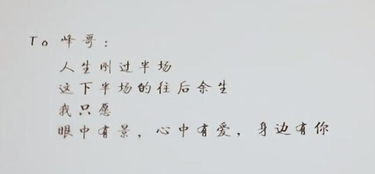 To 峰哥:
人生刚过半场
这下半场的往后余生
我只愿
眼中有景，心中有爱，身边有你